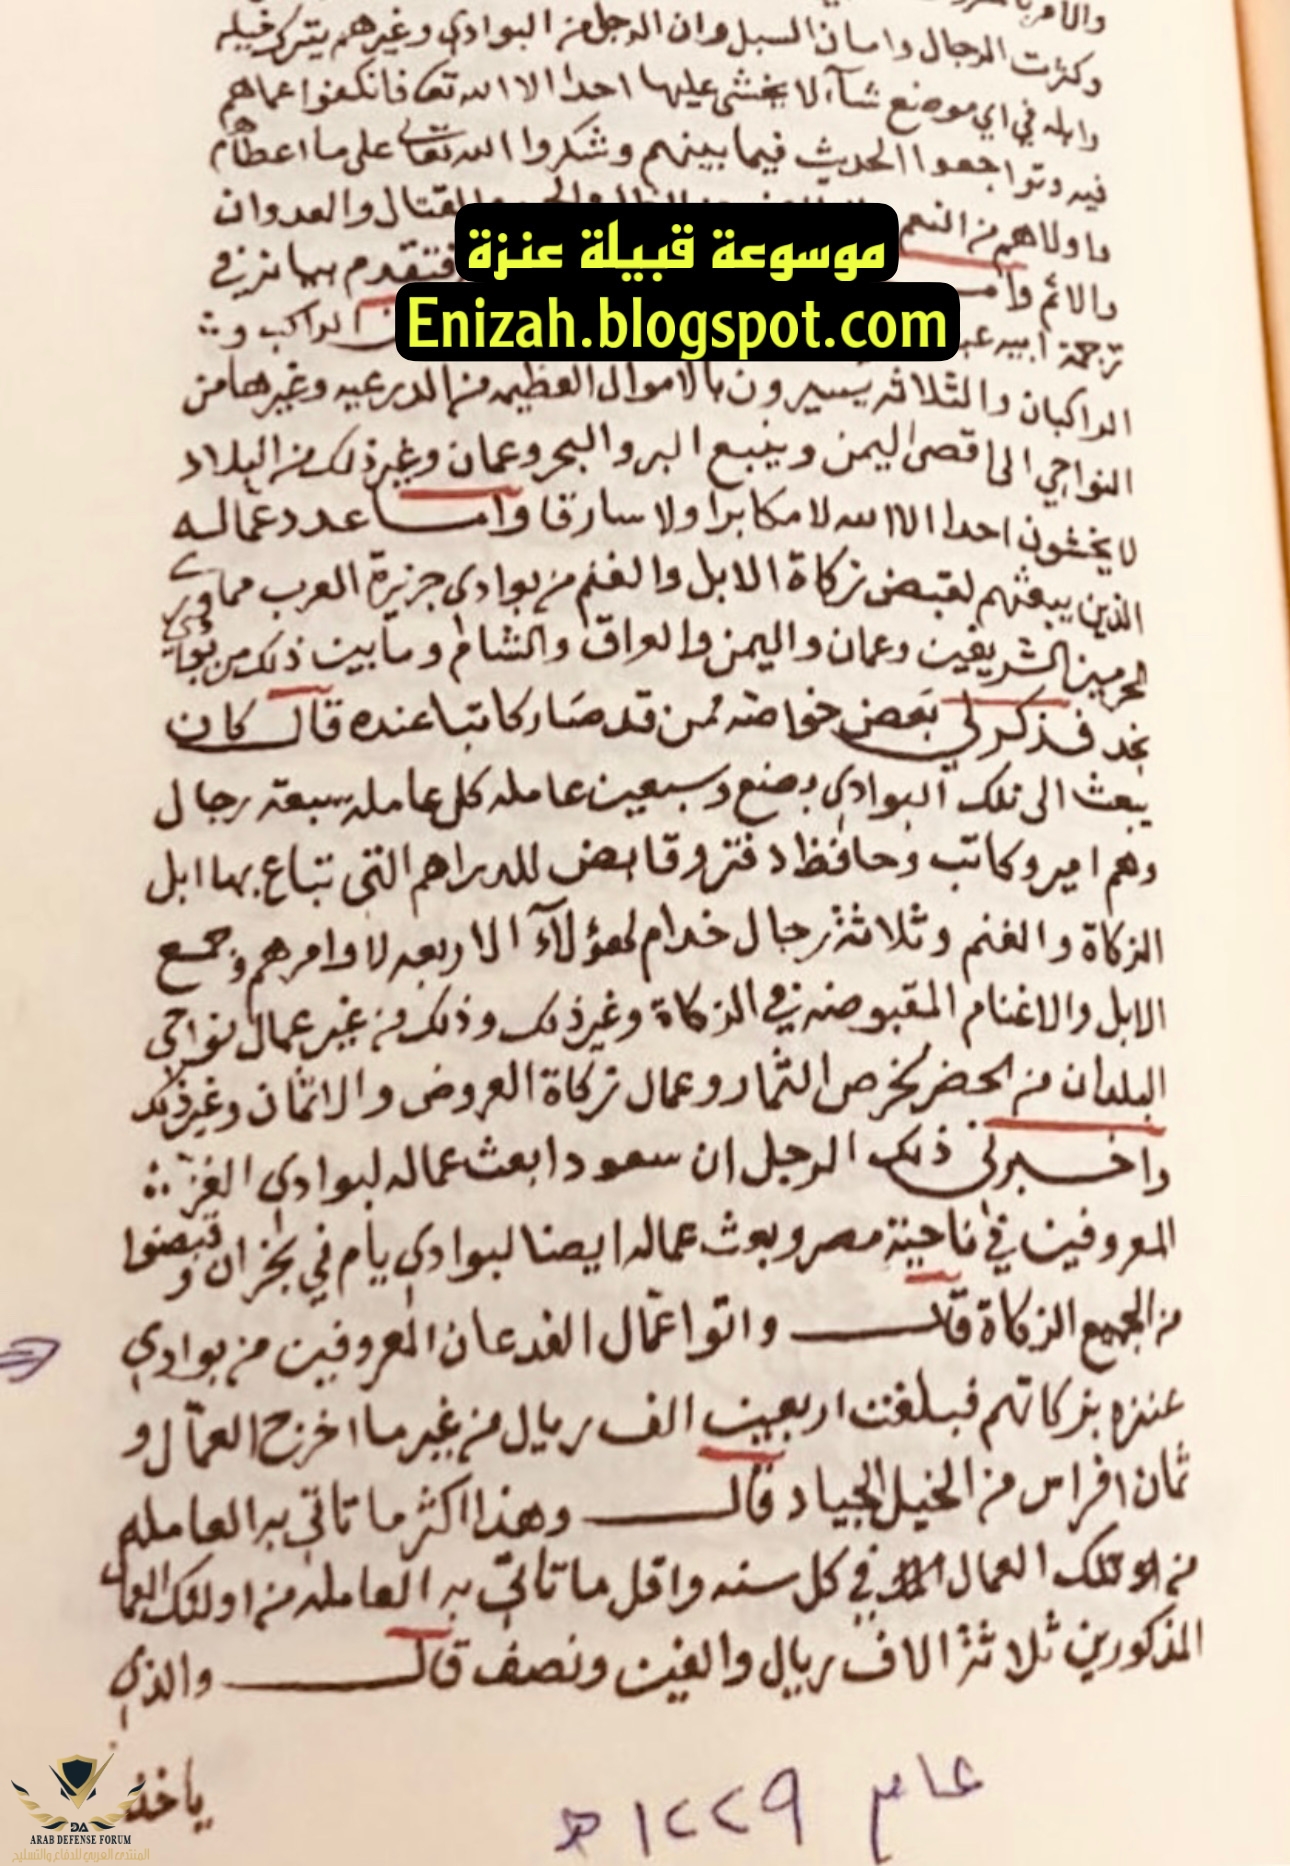 وكثرت الرجال وامان السبل وان الرجل من البوادي وغيرهم يترك خيله
وابله في اي موضع شآء لا يخشى عليها احدا الا الله تعالى فانكفوا عماهم
فيه وتراجعوا الحديث فيما بينهم وشكروا الله تعالى على ما اعطاهم
واولاهم من النعم والقتال والعدوان
موسوعة قبيلة عنزة
والاثم وامـ فتقدم بيانه في
Enizah.blogspot.com
ترجمة ابيه عبد الراكب و
الراكبان والثلاثه يسيرون بالاموال العظيمه من الدرعيه وغيرها من
النواحي الى اقصى اليمن وينبع البر والبحر وعمان وغير ذلك من البلاد
لا يخشون احدا الا الله لا مكابرا ولا سارقا وامـا عدد عماله
الذين يبعثهم لقبض زكاة الابل والغنم من بوادي جزيرة العرب مما وري
الحرمين الشريفين وعمان واليمن والعراق والشام وما بين ذلك من بوادي
نجد فذكر لي بعض خواصه ممن قد صار كاتبا عنده قال كان
يبعث الى تلك البوادي بضع وسبعين عامله كل عامله سبعة رجال
وهم امير وكاتب وحافظ دفتر وقابض للدراهم التي تباع بها ابل
الزكاة والغنم وثلاثة رجال خدام لهؤلآء الاربعه لاوامرهم وجمع
الابل والاغنام المقبوضه في الزكاة وغير ذلك وذلك من غير عمال نواحي
البلدان من الحضر لخرص الثمار وعمال زكاة العروض والاثمان وغير ذلك
واخبرني ذلك الرجل ان سعودا بعث عماله لبوادي الغز
المعروفين في ناحية مصر وبعث عماله ايضا لبوادي يام في نجران وقبضوا
من الجميع الزكاة قال واتوا عمال الفدعان المعروفين من بوادي
عنزه بزكاتهم فبلغت اربعين الف ريال من غير ما اخرج العمال و
ثمان افراس من الخيل الجياد قال وهذا اكثر ما تاتي به العامله
من تلك العمال في كل سنه واقل ما تاتي به العامله من اولئك العمال
المذكورين ثلاثة الاف ريال والفين ونصف قال والذي
ياخذ
عام ١٢٢٩ هـ
DA
ARAB DEFENSE FORUM
المنتدى العربي للدفاع والتسليح